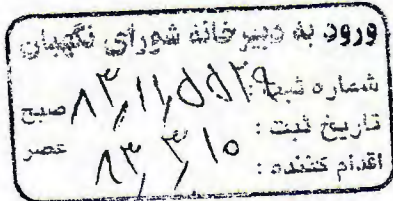 ورود به دبیرخانه شورای نگهبان
شماره ثبت: ۸۳,۱۱,۵۵۲۹ صبح
تاریخ ثبت: ۸۳,۳,۱۰ عصر
اقدام کننده: